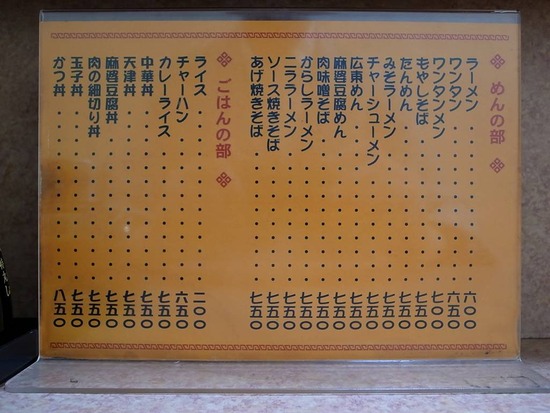 めんの部
ラーメン・・・・・・・・・・六〇〇
ワンタン・・・・・・・・・・六五〇
ワンタンメン・・・・・・・・七〇〇
もやしそば・・・・・・・・・七五〇
たんめん・・・・・・・・・・七五〇
みそラーメン・・・・・・・・七五〇
チャーシューメン・・・・・・七五〇
広東めん・・・・・・・・・・七五〇
麻婆豆腐めん・・・・・・・・七五〇
肉味噌そば・・・・・・・・・七五〇
からしラーメン・・・・・・・七五〇
ニララーメン・・・・・・・・七五〇
ソース焼きそば・・・・・・・七五〇
あげ焼きそば・・・・・・・・七五〇
ごはんの部
ライス・・・・・・・・・・・二〇〇
チャーハン・・・・・・・・・六五〇
カレーライス・・・・・・・・七五〇
中華丼・・・・・・・・・・・七五〇
天津丼・・・・・・・・・・・七五〇
麻婆豆腐丼・・・・・・・・・七五〇
肉の細切り丼・・・・・・・・七五〇
玉子丼・・・・・・・・・・・七五〇
かつ丼・・・・・・・・・・・八五〇